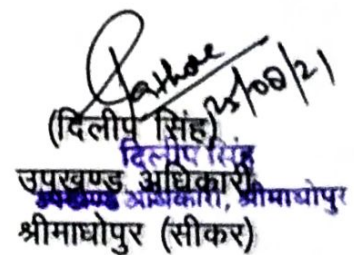 Rathore
25/08/21
(दिलीप सिंह)
दिलीप सिंह
उपखण्ड अधिकारी
उपखण्ड अधिकारी, श्रीमाधोपुर
श्रीमाधोपुर (सीकर)